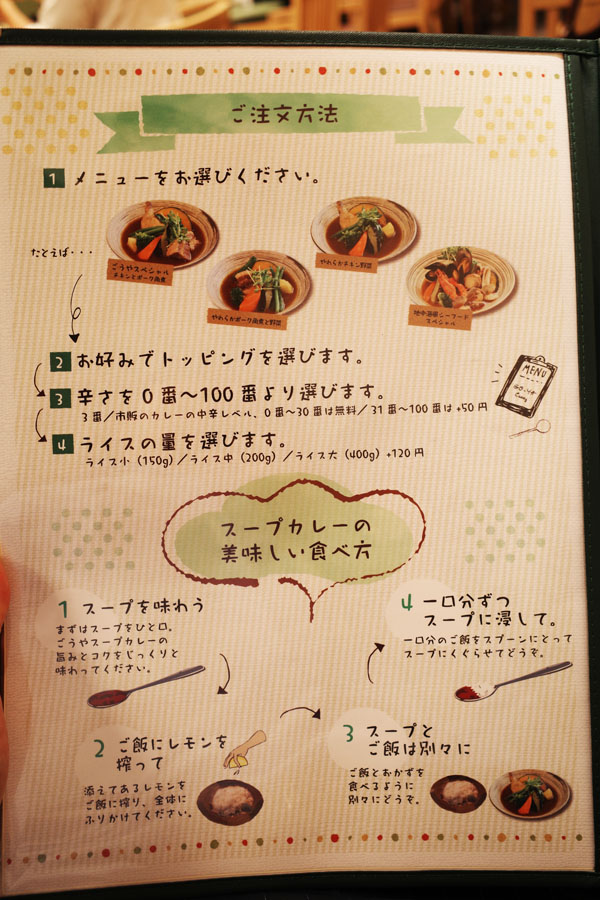 ご注文方法
1 メニューをお選びください。
たとえば・・・
ごうやスペシャル
チキンとポーク角煮
やわらかポーク角煮と野菜
やわらかチキン野菜
地中海風シーフード
スペシャル
2 お好みでトッピングを選びます。
3 辛さを0番〜100番より選びます。
3番/市販のカレーの中辛レベル、0番〜30番は無料/31番〜100番は+50円
4 ライスの量を選びます。
ライス小(150g)/ライス中(200g)/ライス大(400g)+120円
MENU
スープカレーの
美味しい食べ方
1 スープを味わう
まずはスープをひと口。
ごうやスープカレーの
旨みとコクをじっくりと
味わってください。
2 ご飯にレモンを
搾って
添えてあるレモンを
ご飯に搾り、全体に
ふりかけてください。
3 スープと
ご飯は別々に
ご飯とおかずを
食べるように
別々にどうぞ。
4 一口分ずつ
スープに浸して。
一口分のご飯をスプーンにとって
スープにくぐらせてどうぞ。